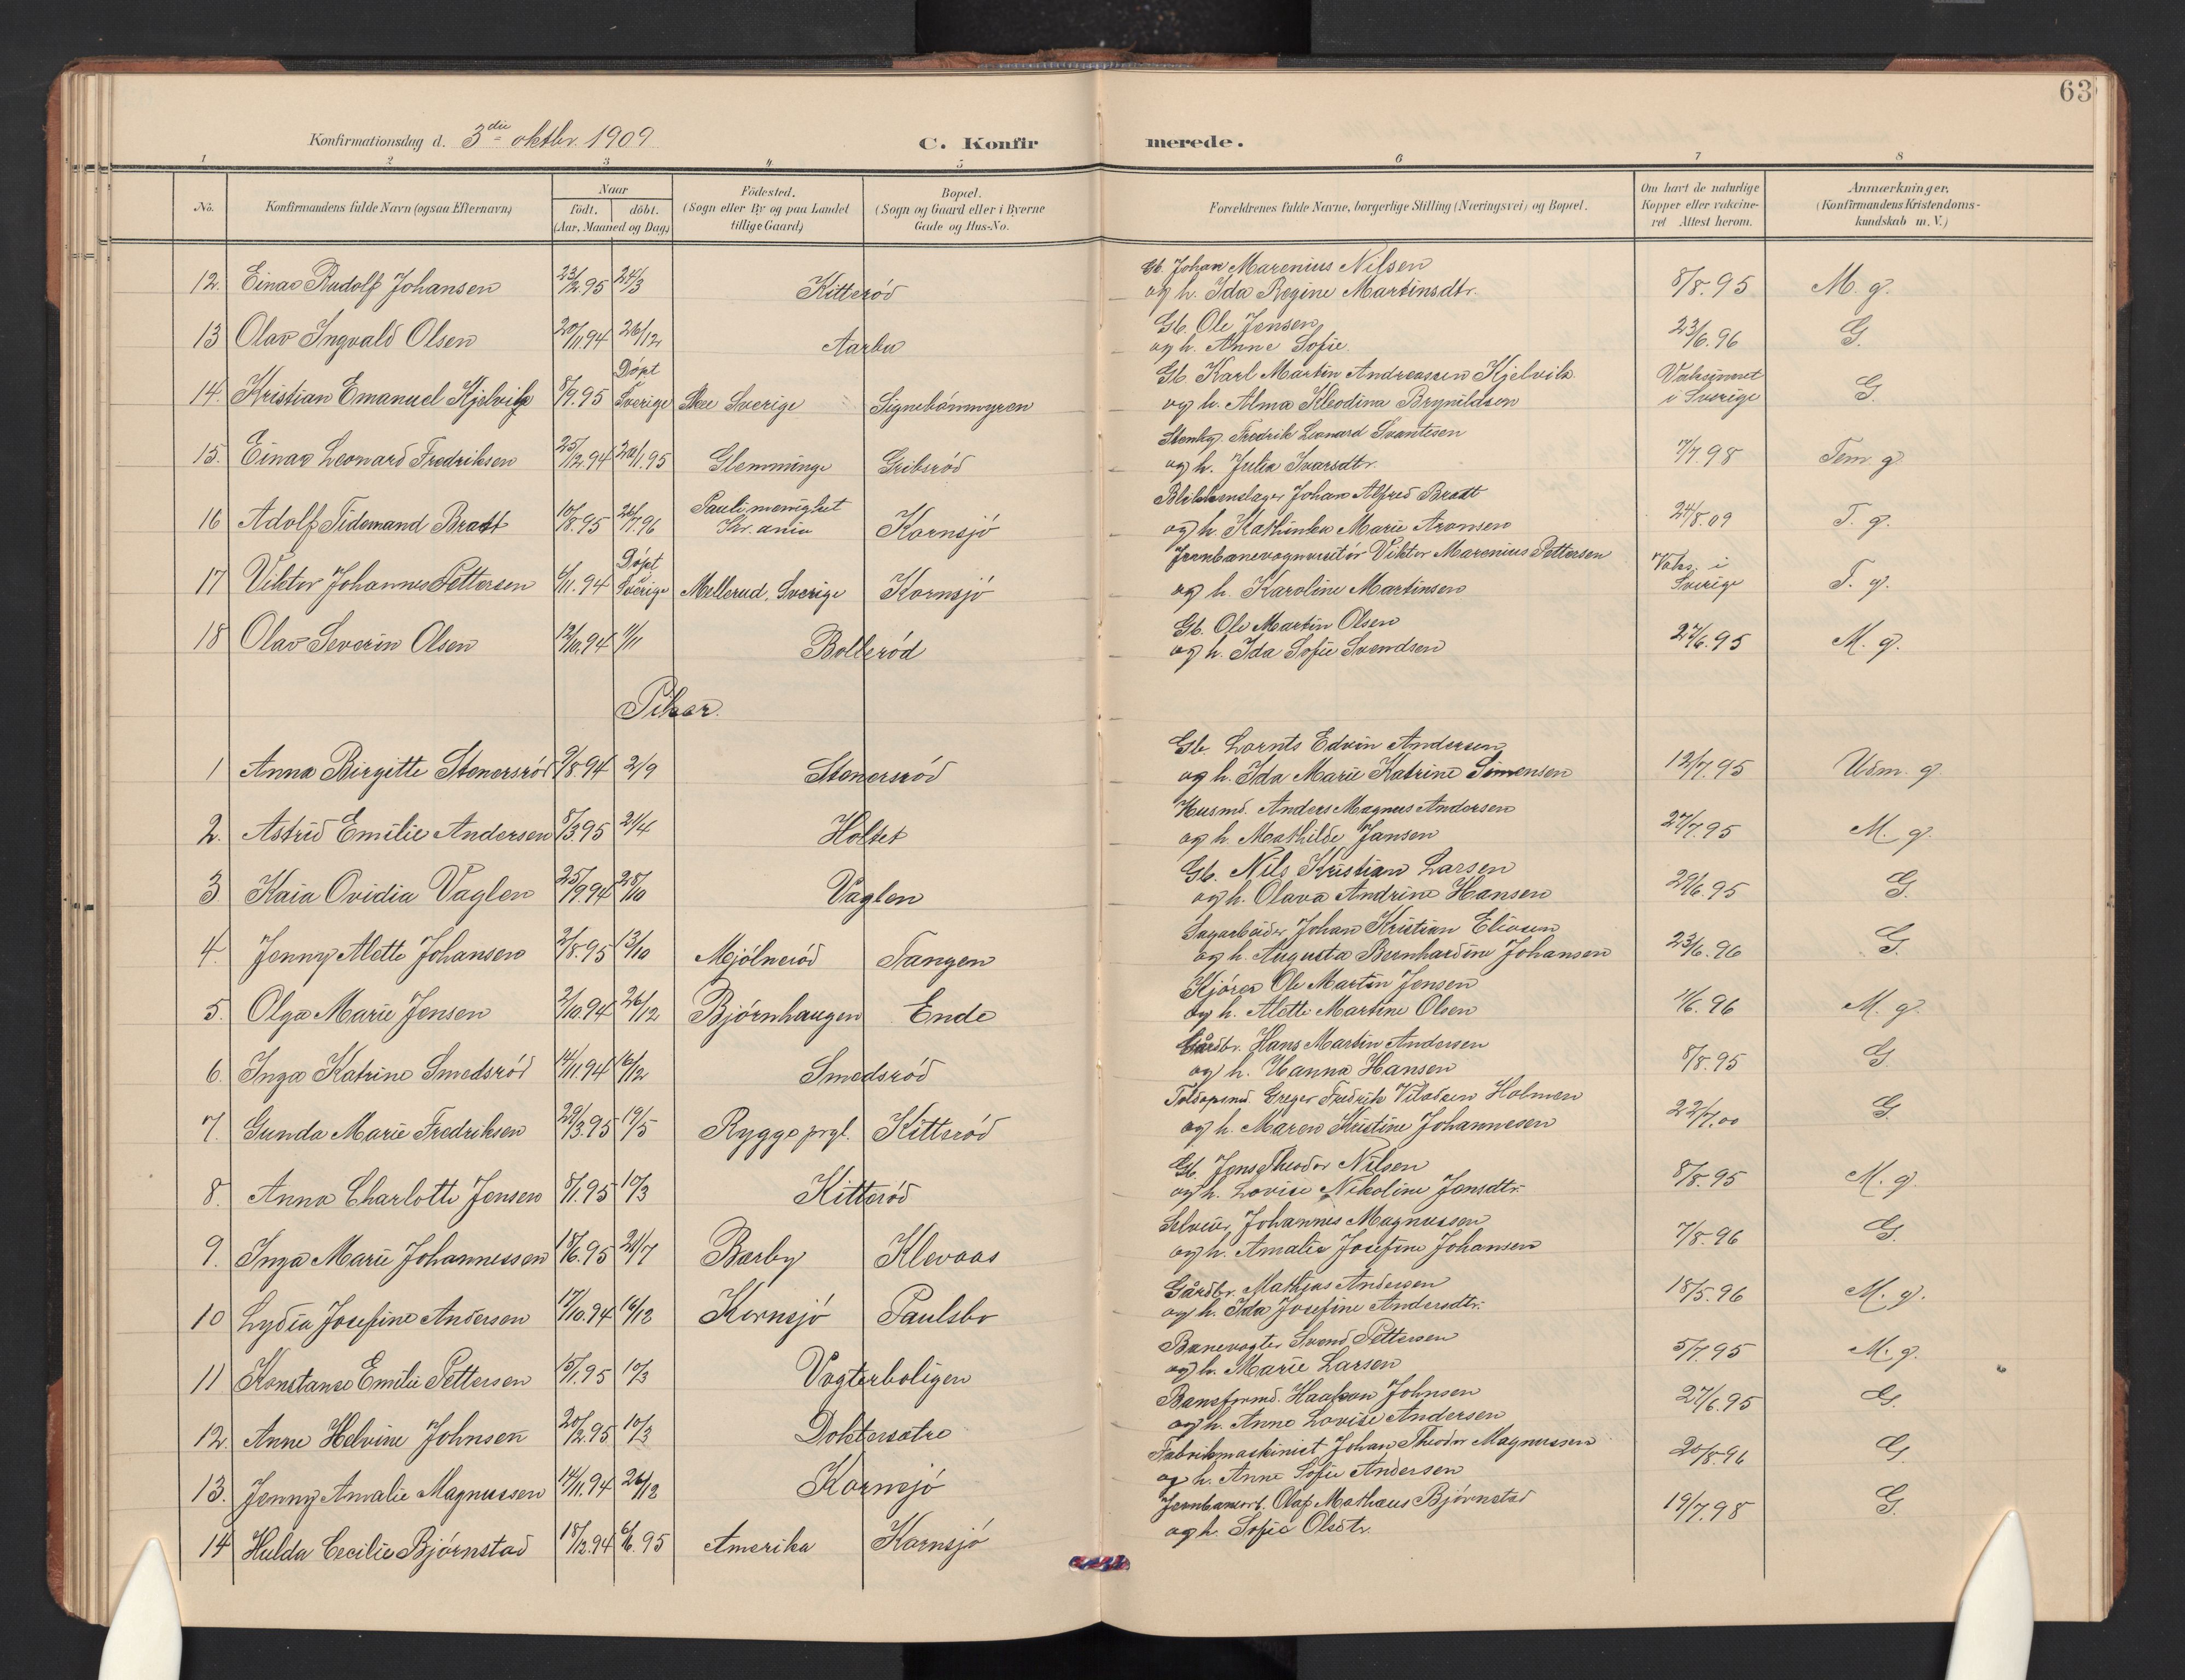 63
Konfirmationsdag d. 3die oktbr. 1909
C. Konfirmerede.
1 2 3 4 5 6 7 8
No.
Konfirmandens fulde Navn (ogsaa Efternavn)
Naar
födt. döbt.
(Aar, Maaned og Dag)
Födested.
(Sogn eller By og paa Landet
tillige Gaard)
Bopæl.
(Sogn og Gaard eller i Byerne
Gade og Hus-No.
Forældrenes fulde Navne, borgerlige Stilling (Næringsvei) og Bopæl.
Om havt de naturlige
Kopper eller vakcine-
ret Attest herom.
Anmærkninger.
(Konfirmandens Kristendoms-
kundskab m. V.)
12. Einar Rudolf Johansen 23/2.95 24/3 Kitteröd Gb. Johan Marenius Nilsen
og h. Ida Regine Martinsdtr. 8/8.95 M. g.
13 Olav Ingvald Olsen 20/11.94 26/12 Aarbu Gb. Ole Jensen
og h. Anne Sofie. 23/6.96 G.
14. Kristian Emanuel Kjelvik 8/9.95 Döpt Sverige Skee Sverige Signebönmyren Gb. Karl Martin Andreassen Kjelvik
og h. Alma Kleodina Brynildsen Vaksineret i Sverige G.
15. Einar Leonard Fredriksen 25/12.94 20/1.95 Glemminge Gribsröd Stenhg. Fredrik Leonard Svantesen
og h. Julia Ivarsdtr. 7/7.98 Tem. g.
16 Adolf Tidemand Bratt 10/8.95 26/7.96 Pauli menighet Kr.ania Kornsjö Blikkenslager Johan Alfred Bratt
og h. Kathinka Marie Aronsen 24/8.09 T. g.
17 Viktor Johannes Pettersen 6/11.94 Döpt Sverige Mellerud, Sverige Kornsjö Jernbanevognvisitör Viktor Marenius Pettersen
og h. Karoline Martinsen Vaks. i Sverige T. g.
18 Olav Severin Olsen 12/10.94 1/11 Bolleröd Gb. Ole Martin Olsen
og h. Ida Sofie Svendsen 27/6.95 M. g.
Piker.
1 Anna Birgitte Stenersröd 9/8.94 2/9 Stenersröd Gb. Lornts Edvin Andersen
og h. Ida Marie Katrine Simensen 12/7.95 Udm. g.
2. Astrid Emilie Andersen 8/3.95 21/4 Holtet Husmd. Anders Magnus Andersen
og h. Mathilde Jansen 27/7.95 M. g.
3 Kaia Ovidia Vaglen 25/9.94 28/10 Vaglen Gb. Nils Kristian Larsen
og h. Olava Andrine Hansen 29/6.95 G.
4. Jenny Alette Johansen 2/8.95 13/10 Mjölneröd Tangen Sagarbeider Johan Kristian Eliasen
og h. Augusta Bernhardine Johansen 23/6.96 G.
5. Olga Marie Jensen 2/10.94 26/12 Björnhaugen Ende Kjörer Ole Martin Jensen
og h. Alette Martine Olsen 1/6.96 M. g.
6. Inga Katrine Smedsröd 14/11.94 16/12 Smedsröd Gårdbr. Hans Martin Andersen
og h. Hanna Hansen 8/8.95 G.
7. Gunda Marie Fredriksen 29/3.95 19/5 Rygge prgl. Kitteröd Toldopsmd. Greger Fredrik Viladsen Holmen
og h. Maren Kristine Johannesen 22/7.00 G.
8. Anna Charlotte Jensen 8/1.95 10/3 Kitteröd Gb. Jens Theodor Nilsen
og h. Lovise Nikoline Jensdtr. 8/8.95 M. g.
9. Inga Marie Johannessen 18/6.95 21/7 Bærby Klevaas Selveier Johannes Magnussen
og h. Amalie Josefine Johansen 7/8.96 G.
10 Lydia Josefine Andersen 17/10.94 16/12 Kornsjö Paulsbo Gårdbr. Mathias Andersen
og h. Ida Josefine Andersdtr. 18/5.96 M. g.
11 Konstanse Emilie Pettersen 15/1.95 10/3 Vogterboligen Banevogter Svend Pettersen
og h. Marie Larsen 5/7.95 M. g.
12. Anne Helvine Johnsen 20/2.95 10/3 Doktersætre Baneformd. Haakon Johnsen
og h. Anne Lovise Andersen 27/6.95 G.
13. Jenny Amalie Magnussen 14/11.94 26/12 Kornsjö Fabrikmaskinist Johan Theodor Magnussen
og h. Anne Sofie Andersen 20/8.96 G.
14 Hulda Cecilie Björnstad 18/12.94 6/6.95 Amerika Kornsjö Jernbanearb. Olaf Mathæus Björnstad
og h. Sofie Olsdtr. 19/7.98 G.